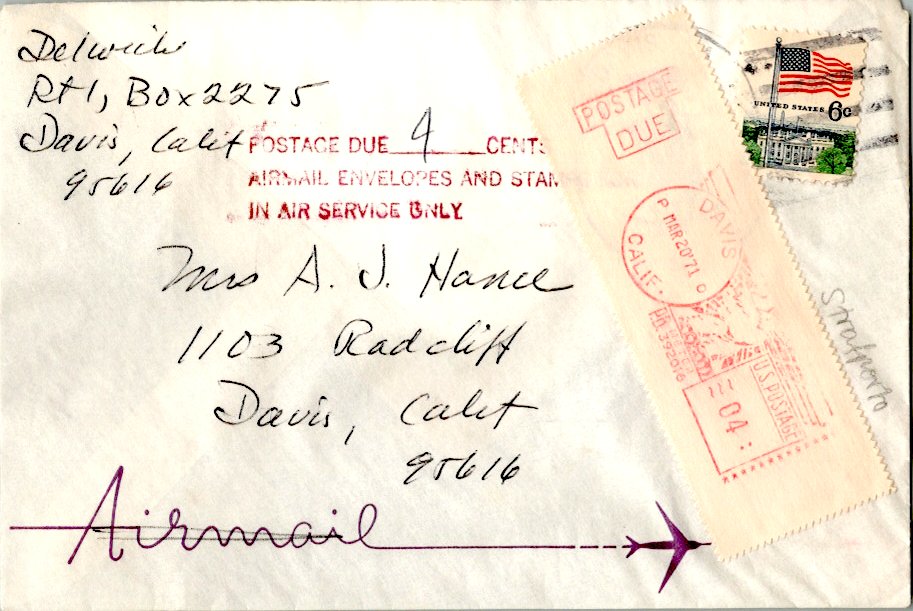 Delwiche
Rt 1, Box 2275
Davis, Calif
95616
POSTAGE DUE 4 CENTS
AIRMAIL ENVELOPES AND STAM
IN AIR SERVICE ONLY
POSTAGE
DUE
DAVIS
P MAR 20 '71
CALIF.
PB METER
392016
U.S. POSTAGE
04
UNITED STATES 6c
Mrs A. J. Hance
1103 Radcliff
Davis, Calif
95616
Airmail